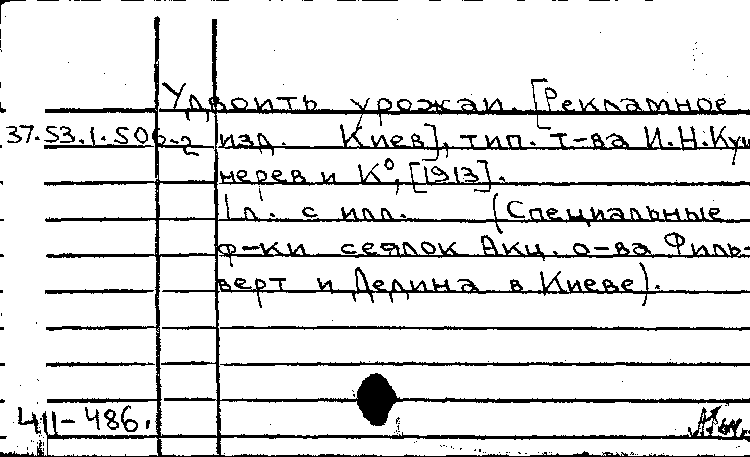 Удвоить урожаи. [Рекламное
37.53.1.506.2 изд. Киев], тип. т-ва И.Н.Куш
нерев и К⁰, [1913].
1 л. с илл. (Специальные
ф-ки сеялок Акц. о-ва Филь-
верт и Дедина в Киеве).
411-486.